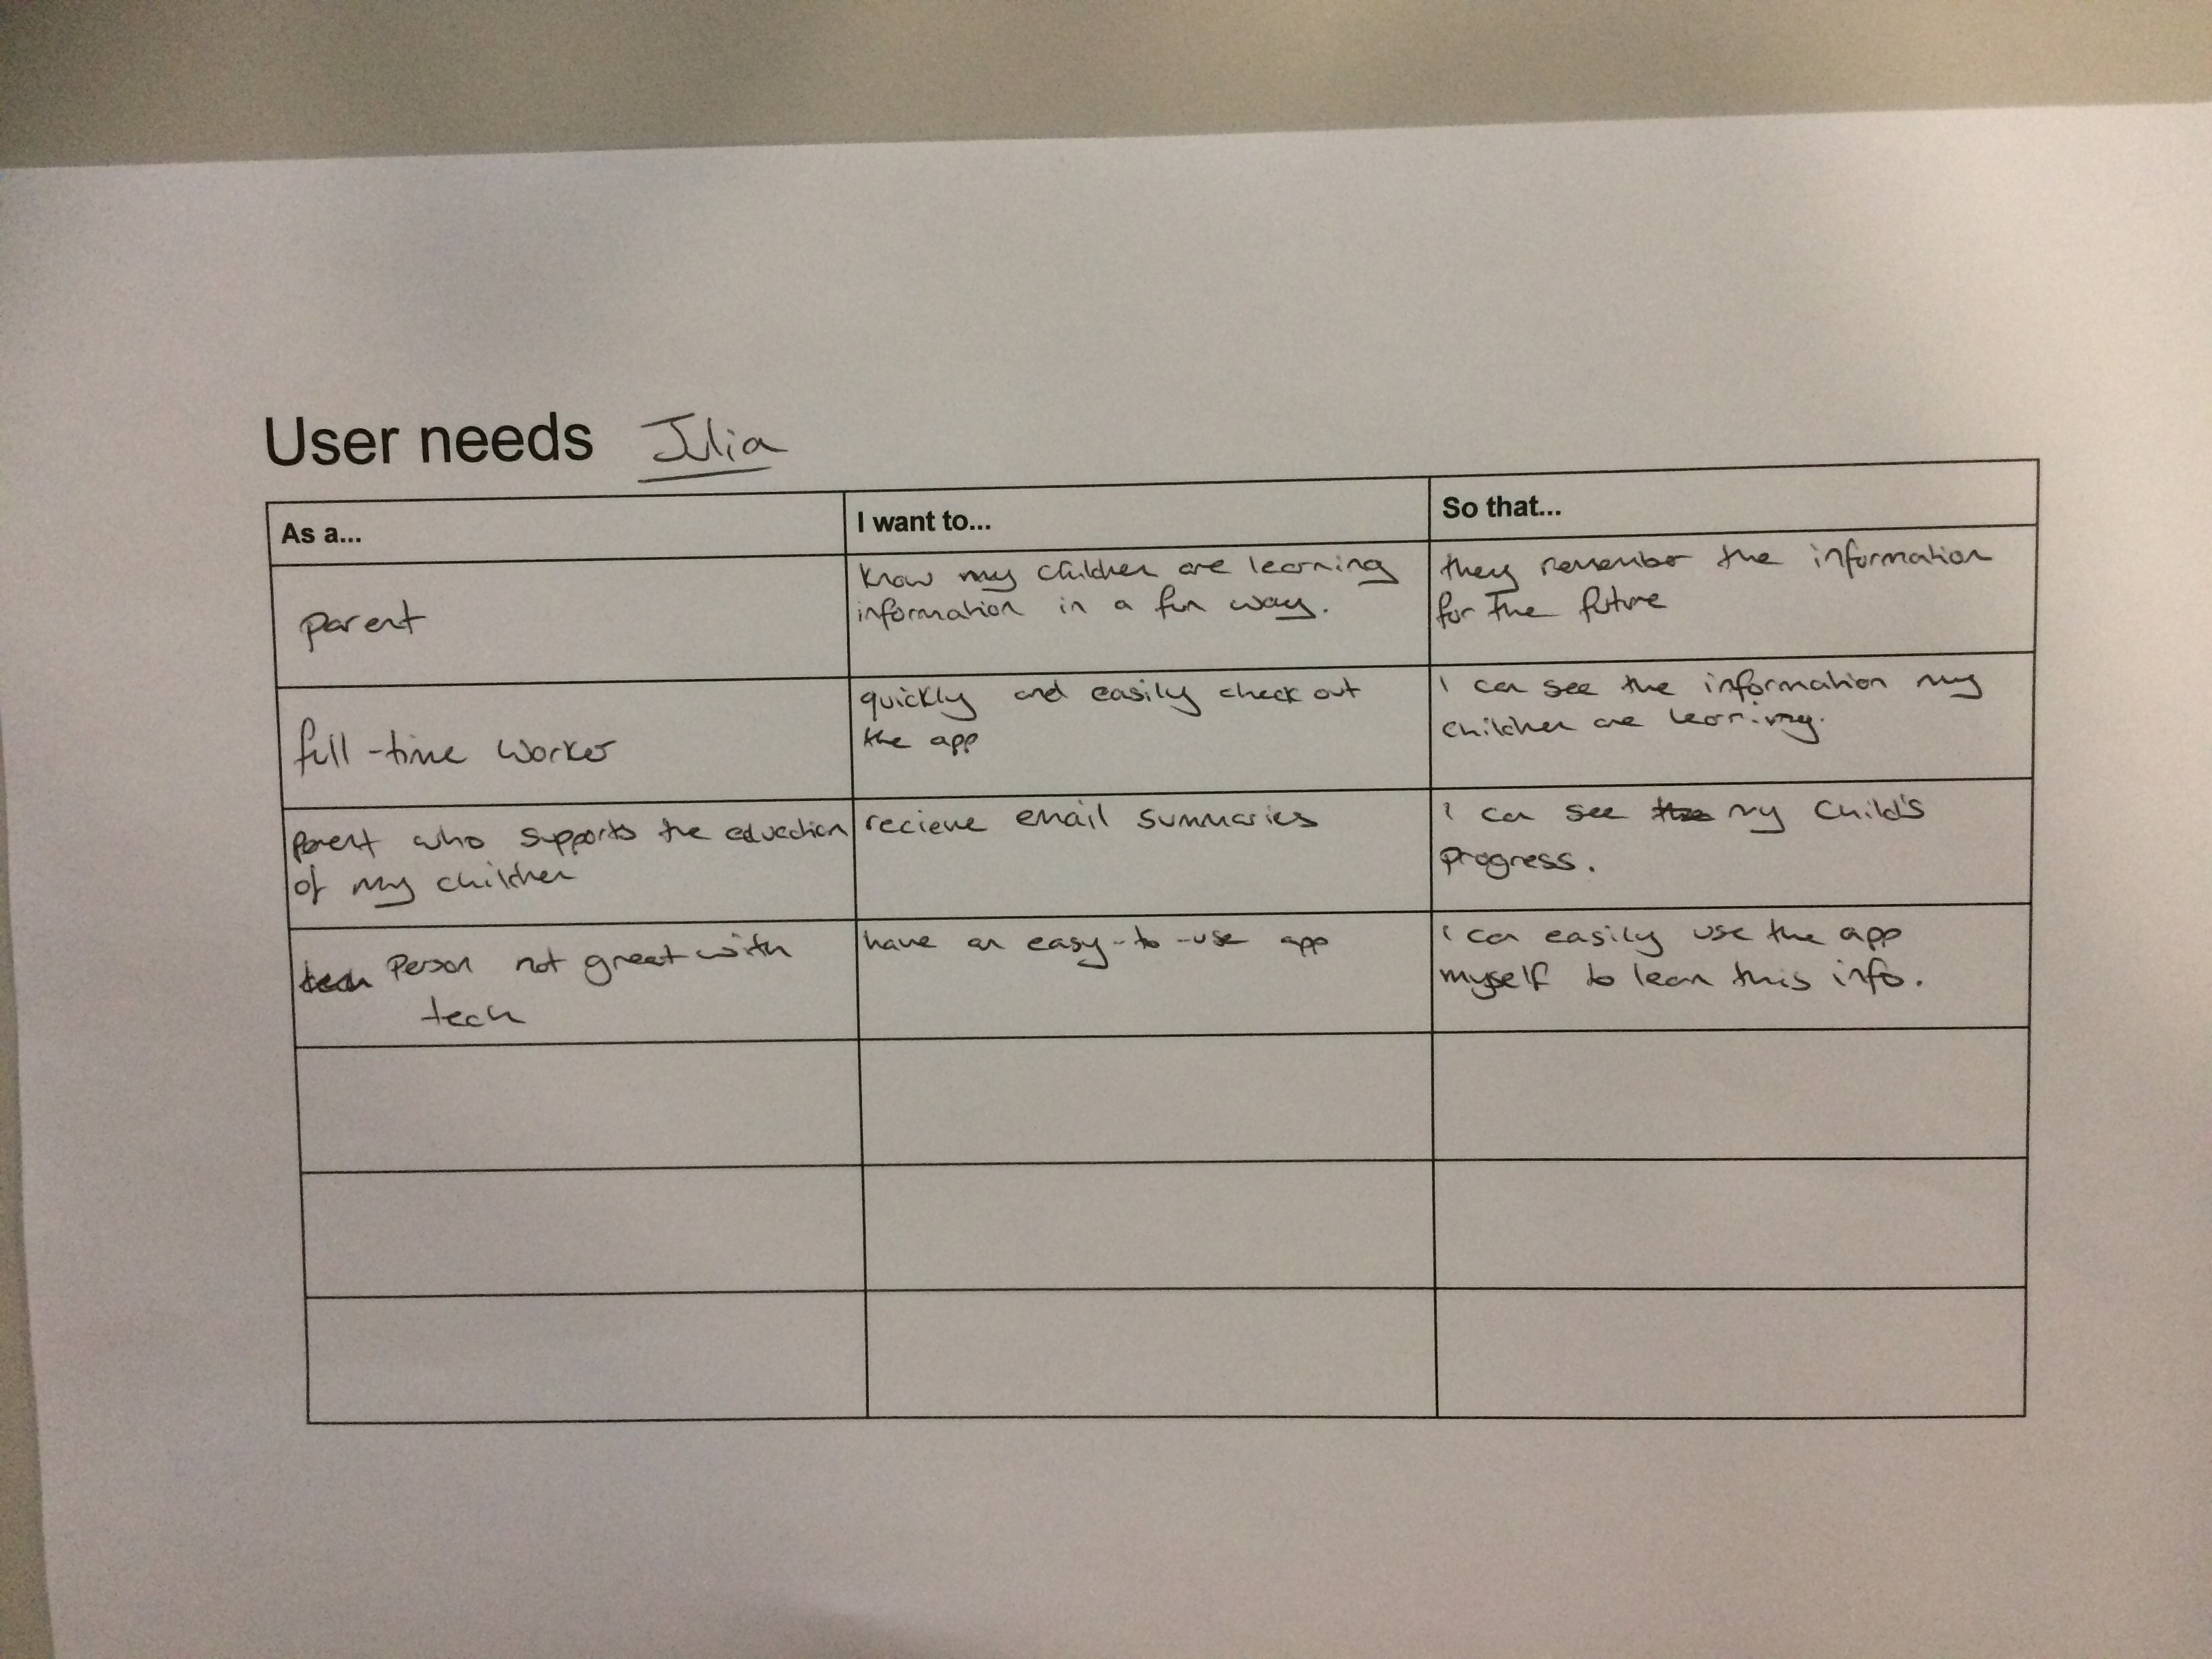 User needs Julia
As a...
I want to...
So that...
parent
know my children are learning
information in a fun way.
they remember the information
for the future
full-time worker
quickly and easily check out
the app
I can see the information my
children are learning.
parent who supports the education
of my children
recieve email summaries
I can see the my child's
progress.
tech Person not great with
tech
have an easy-to-use app
I can easily use the app
myself to learn this info.